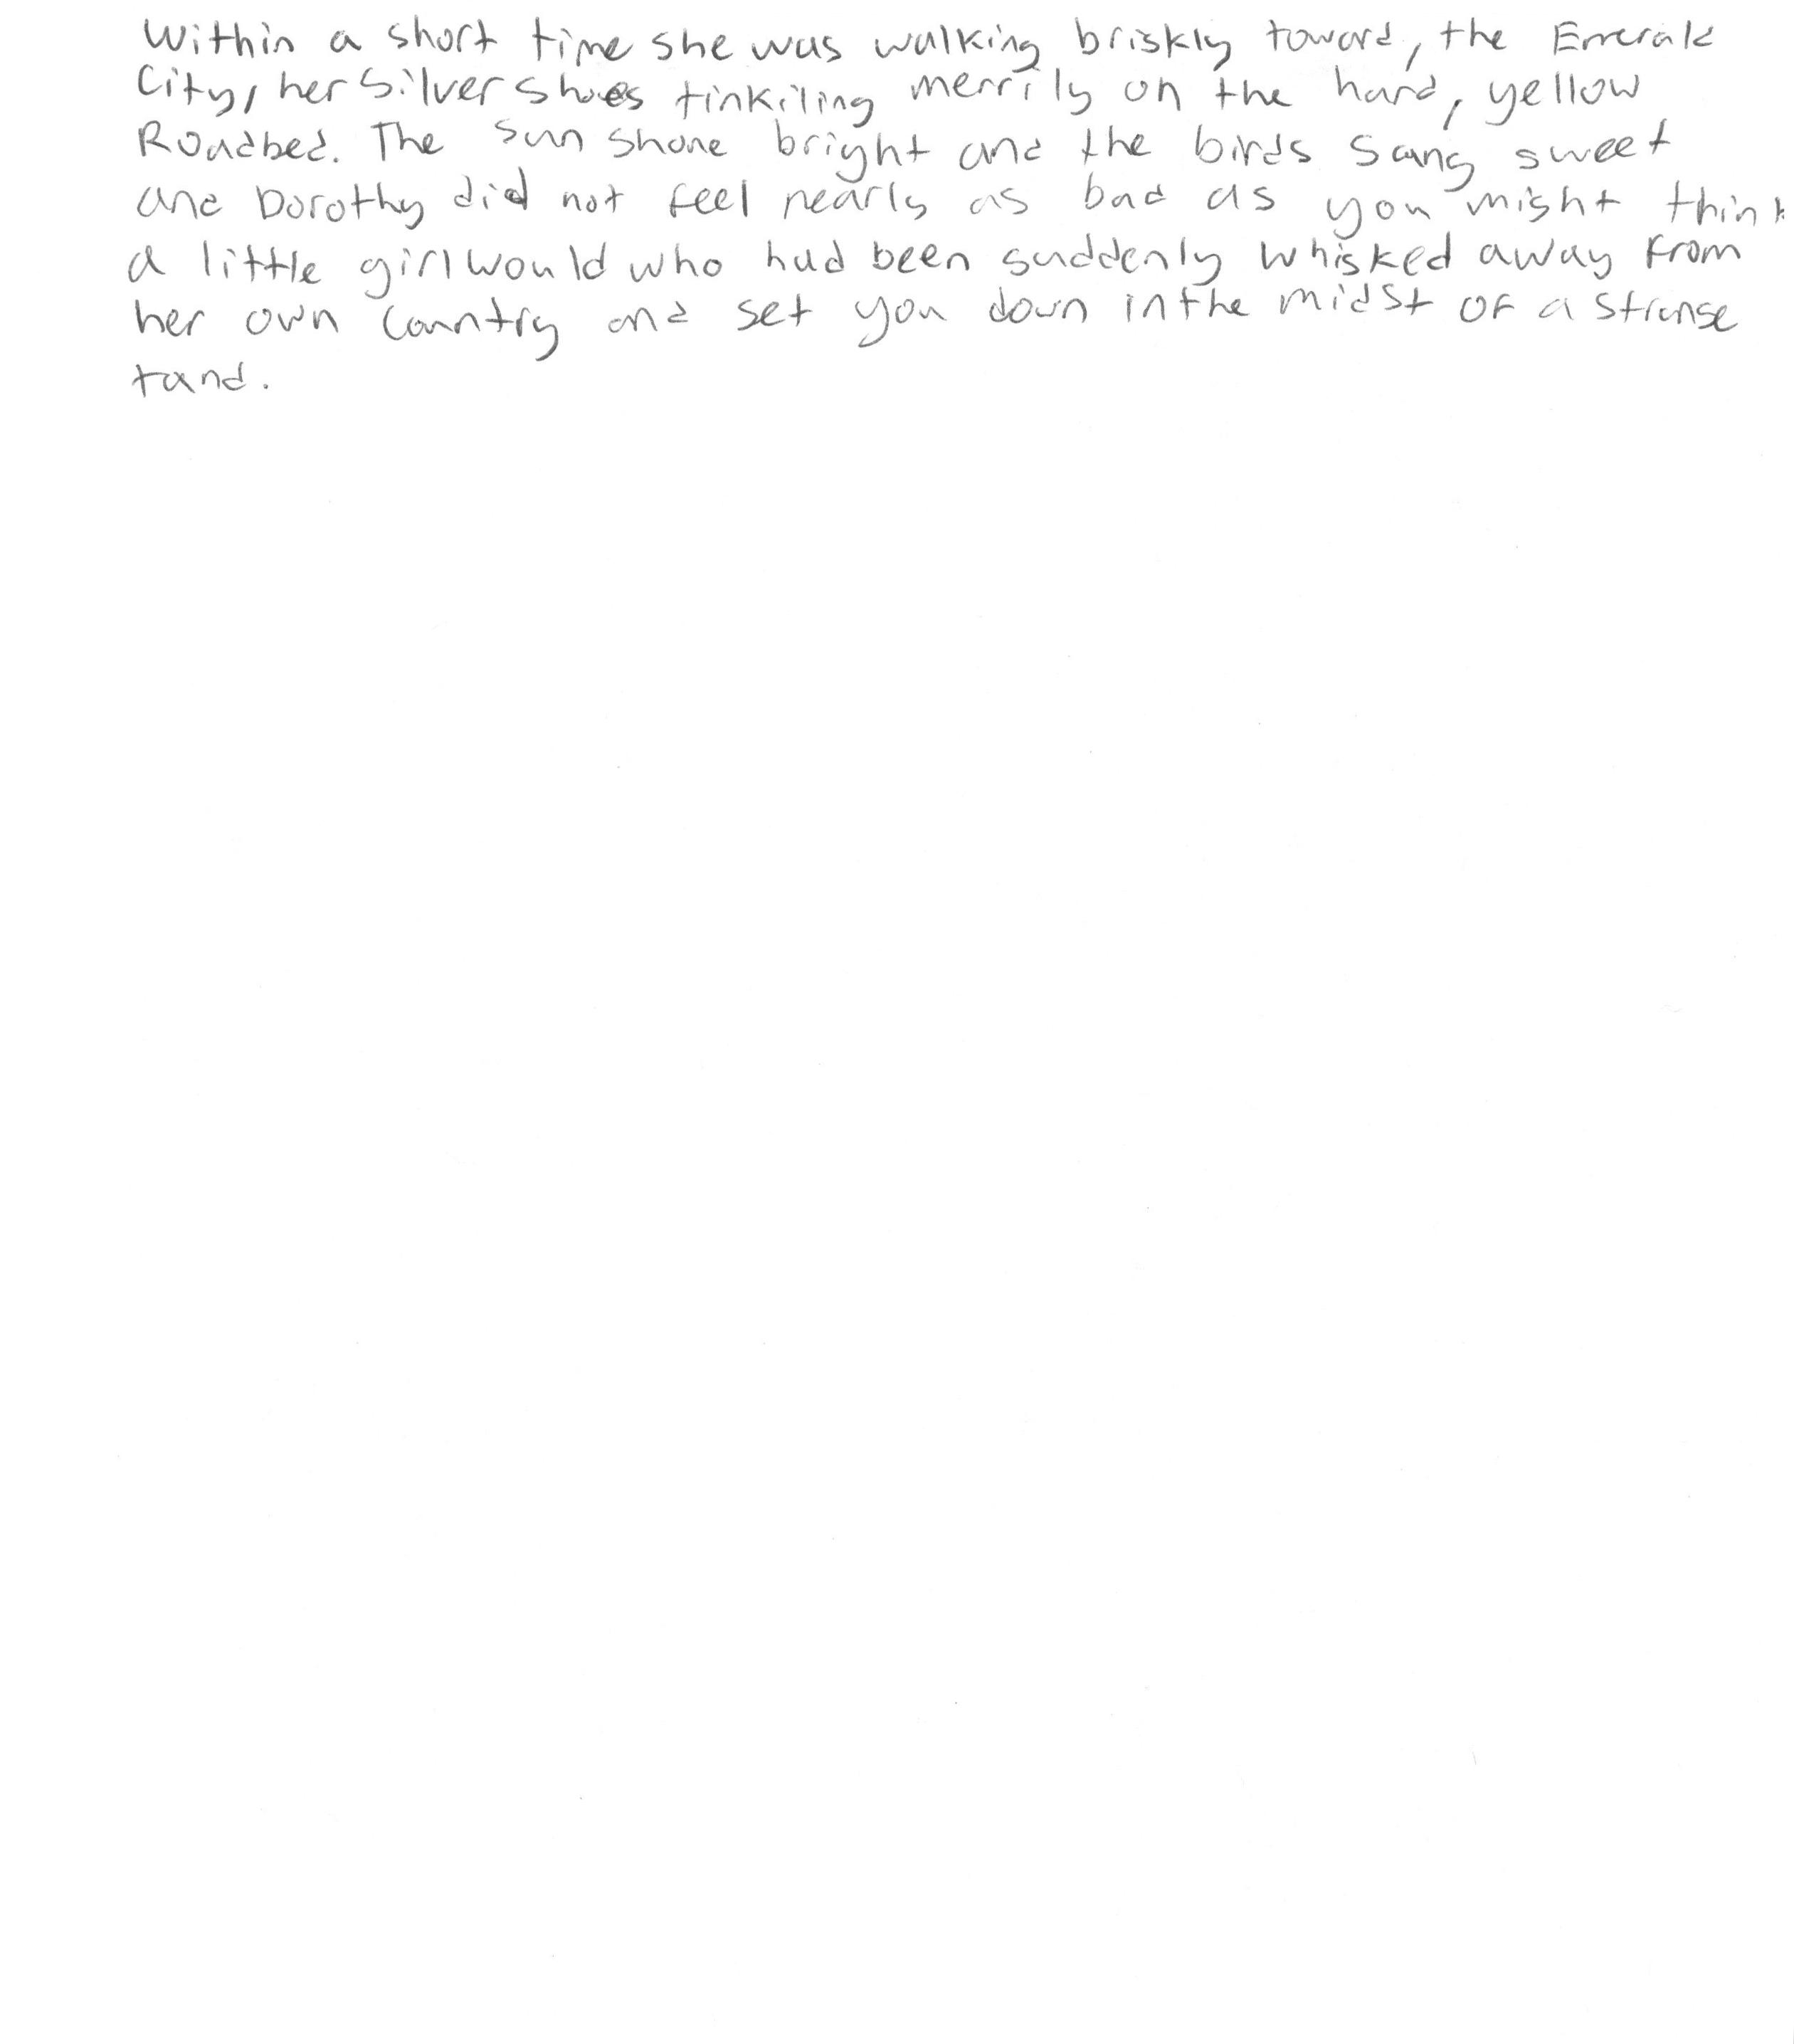 Within a short time she was walking briskly toward, the Emerald
City, her Silver Shoes tinkiling merrily on the hard, yellow
Roadbed. The sun shone bright and the birds sang sweet
and Dorothy did not feel nearly as bad as you might think
a little girl would who had been suddenly whisked away from
her own country and set you down in the midst of a strange
tand.